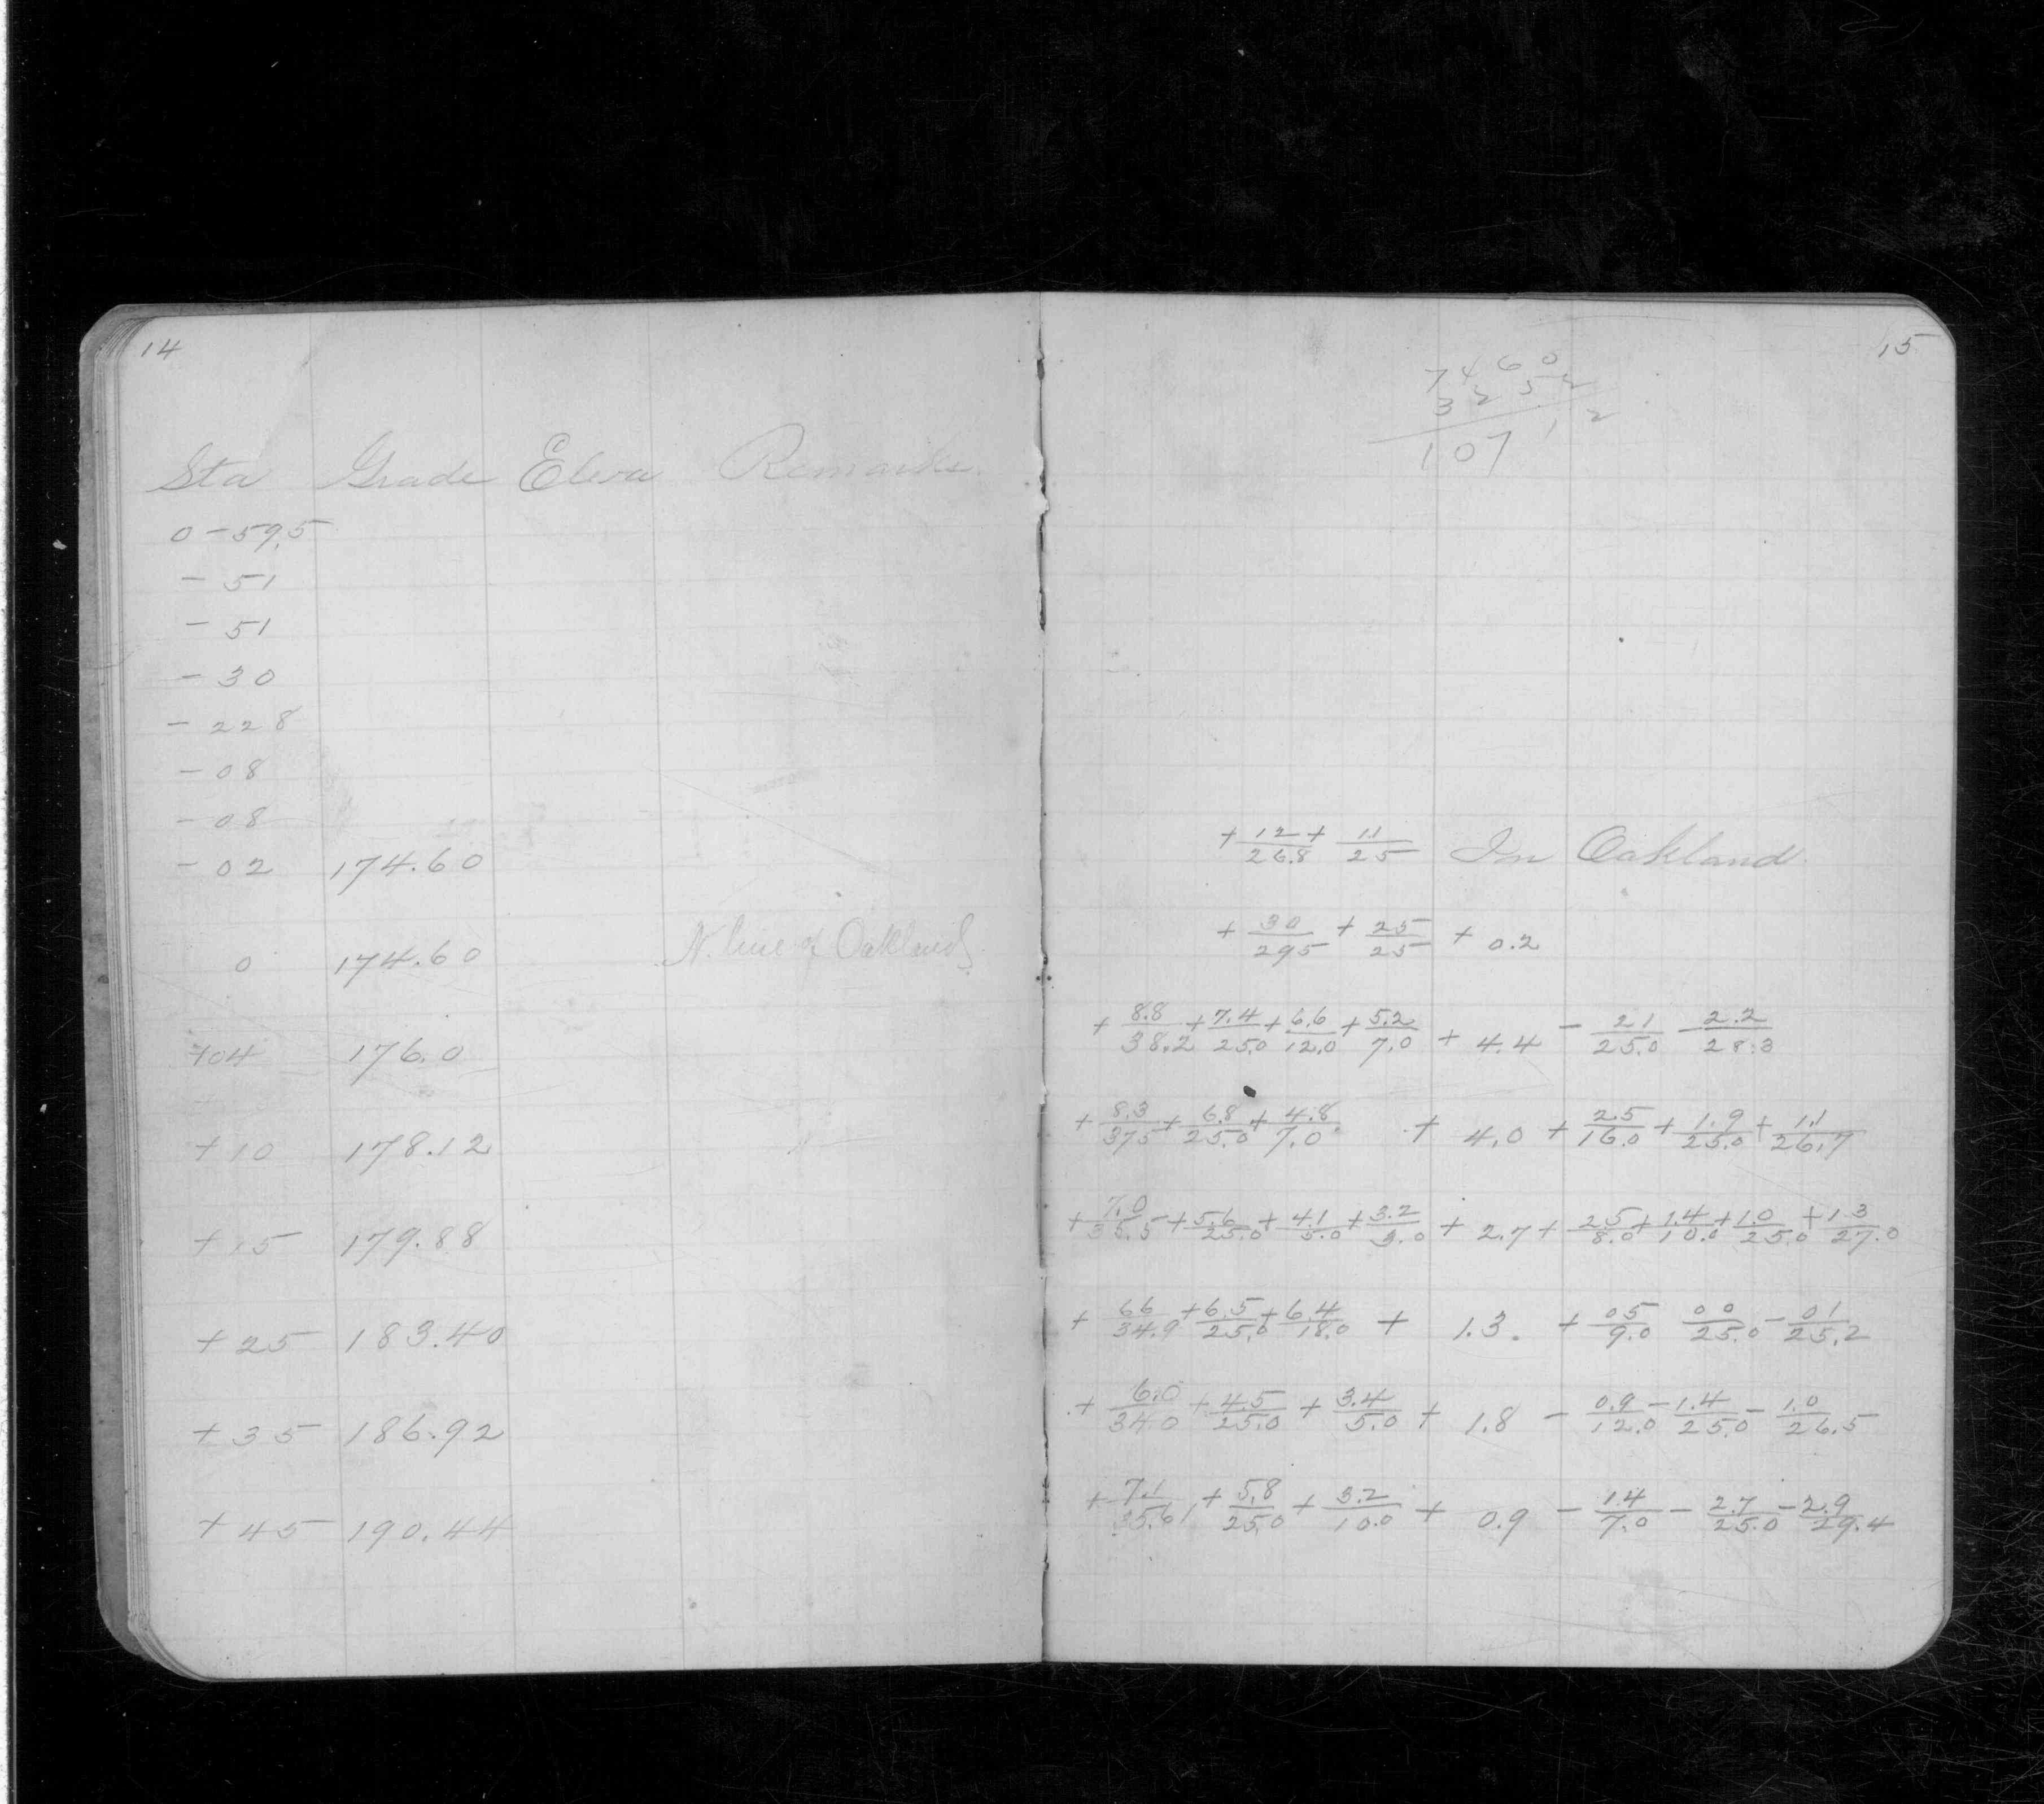 14
Sta Grade Eleva Remarks.
0 - 59.5
- 51
- 51
- 30
- 22 8
- 08
- 08
- 02 174.60
0 174.60 N. line of Oakland
+04 176.0
+ 10 178.12
+ 15 179.88
+ 25 183.40
+ 35 186.92
+ 45 190.44
15
7460
3252
10712
+ 12/26.8 + 11/25 In Oakland
+ 30/295 + 25/25 + 0.2
+ 8.8/38.2 + 7.4/25.0 + 6.6/12.0 + 5.2/7.0 + 4.4 - 21/25.0 2.2/28.3
+ 8.3/375 + 6.8/25.0 + 4.8/7.0 + 4.0 + 25/16.0 + 1.9/25.0 + 1.1/26.7
+ 7.0/35.5 + 5.6/25.0 + 4.1/5.0 + 3.2/3.0 + 2.7 + 2.5/8.0 + 1.4/10.0 + 1.0/25.0 + 1.3/27.0
+ 66/34.9 + 6.5/25.0 + 6.4/18.0 + 1.3. + 05/9.0 00/25.0 - 01/25.2
+ 6.0/34.0 + 4.5/25.0 + 3.4/5.0 + 1.8 - 0.9/12.0 - 1.4/25.0 - 1.0/26.5
+ 7.1/35.6 + 5.8/25.0 + 3.2/10.0 + 0.9 - 1.4/7.0 - 2.7/25.0 - 2.9/29.4